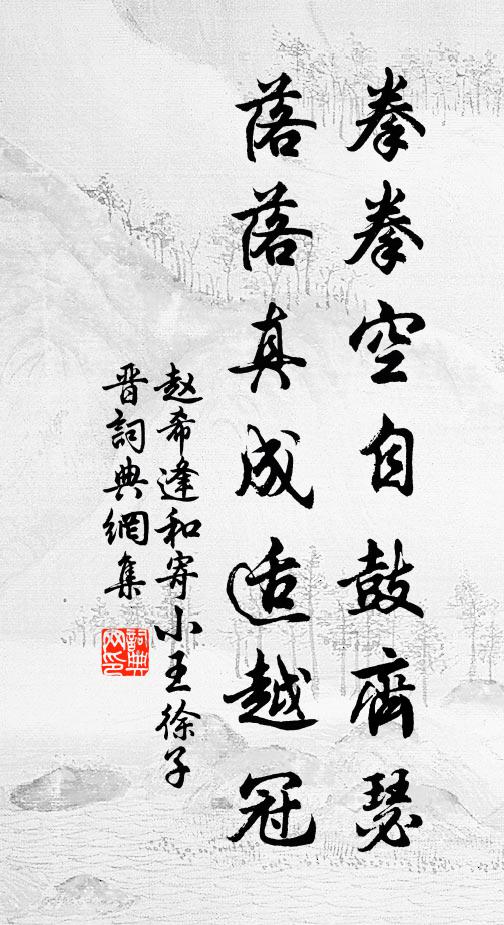 拳拳空自鼓齊瑟
落落真成适越冠
赵希逢和寄小王徐子
晋詞典網集
詞典
网印